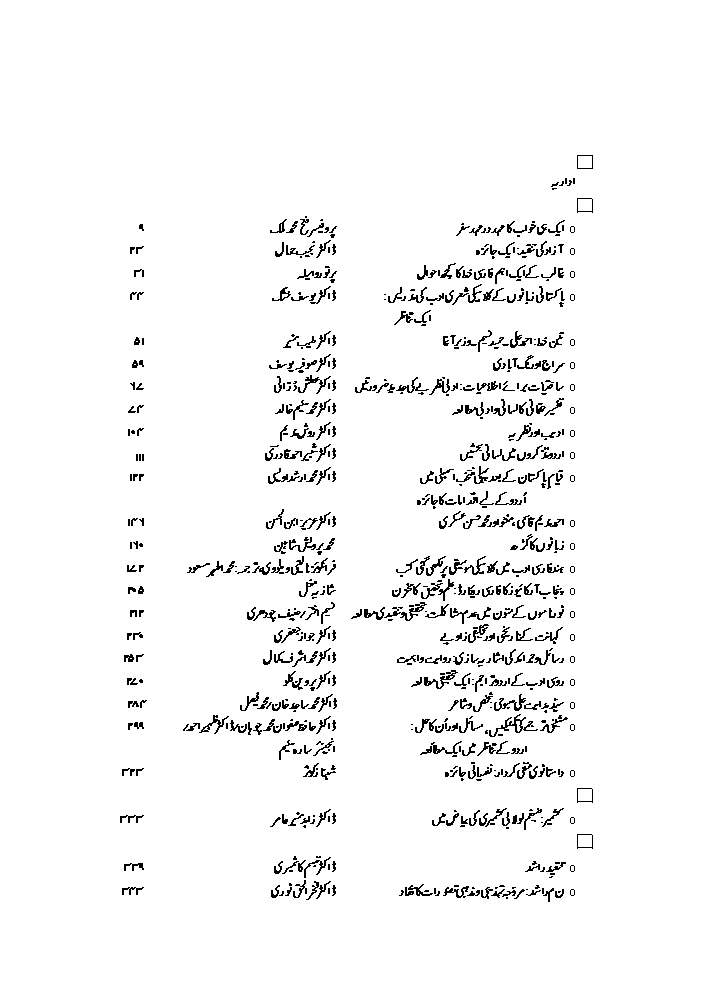 اداریہ
ایک ہی خواب کا عہد در عہد سفر پروفیسر فتح محمد ملک ۹
آزاد کی تنقید: ایک جائزہ ڈاکٹر نجیب جمال ۲۳
غالب کے ایک اہم فارسی خط کا کچھ احوال پرتو روہیلہ ۳۱
پاکستانی زبانوں کے کلاسیکی شعری ادب کی تدریس: ڈاکٹر یوسف خشک ۴۴
ایک تناظر
تین خط: احمد علی۔ حمید نسیم۔ وزیر آغا ڈاکٹر طیب منیر ۵۱
سراج اورنگ آبادی ڈاکٹر صوفیہ یوسف ۵۹
ساختیات برائے اطلاعیات: ادبی نظریے کی جدید ضرورتیں ڈاکٹر عطش درانی ۶۷
تفسیر حقانی کا لسانی و ادبی مطالعہ ڈاکٹر محمد سلیم خالد ۷۴
ادیب اور نظریہ ڈاکٹر روش ندیم ۱۰۴
اردو تذکروں میں لسانی بحثیں ڈاکٹر شبیر احمد قادری ۱۱۱
قیامِ پاکستان کے بعد پہلی منتخب اسمبلی میں ڈاکٹر محمد ارشد اویسی ۱۲۲
اُردو کے لیے اقدامات کا جائزہ
احمد ندیم قاسمی، منٹو اور محمد حسن عسکری ڈاکٹر عزیز ابن الحسن ۱۴۶
زبانوں کا گڑھ محمد پرویش شاہین ۱۶۰
ہند فارسی ادب میں کلاسیکی موسیقی پر لکھی گئی کتب ترجمہ: محمد اطہر مسعود ۱۷۲
پنجاب آرکائیوز کا فارسی ریکارڈ: علم و تحقیق کا مخزن شازیہ مغل ۲۰۵
نور ناموں کے متون میں عدم مشاکلت: تحقیقی و تنقیدی مطالعہ نسیم اختر/حنیف چودھری ۲۱۲
کہاوت کے تاریخی اور تخلیقی زاویے ڈاکٹر جواز جعفری ۲۳۰
رسائل و جرائد کی اشاریہ سازی: روایت و اہمیت ڈاکٹر محمد اشرف کمال ۲۵۳
روسی ادب کے اردو تراجم: ایک تحقیقی مطالعہ ڈاکٹر پروین کلو ۲۷۰
سید ہدایت علی: شخص و شاعر ڈاکٹر محمد ساجد خان/محمد فیصل ۲۸۴
مشینی ترجمے کی تکنیکیں، مسائل اور اُن کا حل: ڈاکٹر حافظ صفوان محمد چوہان/ڈاکٹر ظہیر احمد/ ۲۹۹
اردو کے تناظر میں ایک مطالعہ انجینئر سارہ سلیم
داستانوی منفی کردار: نفسیاتی جائزہ شہناز کوثر ۳۲۳
کشمیر: ضیغم لولابی کشمیری کی بیاض میں ڈاکٹر زاہد منیر عامر ۳۳۳
تنقیدِ راشد ڈاکٹر تبسم کاشمیری ۳۳۹
ن م راشد: مروجہ تہذیبی و مذہبی تصورات کا نقاد ڈاکٹر فخر الحق نوری ۳۴۳